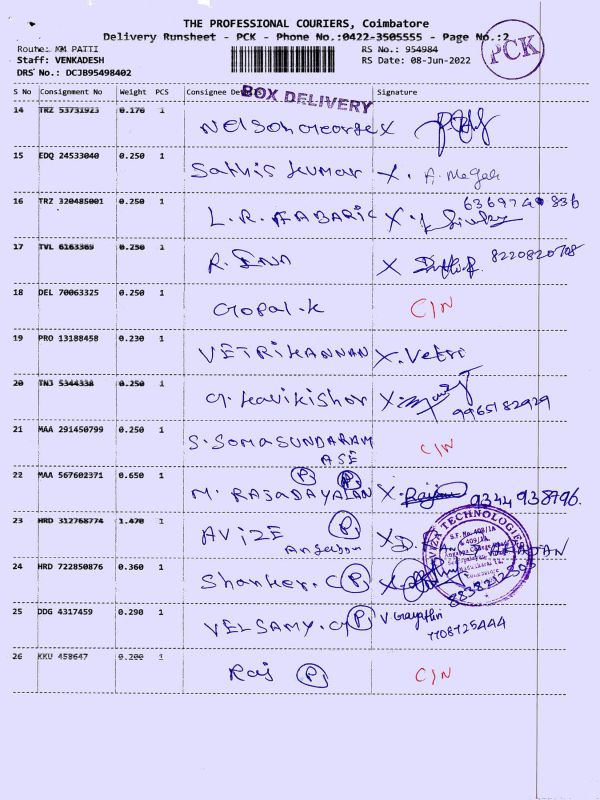 THE PROFESSIONAL COURIERS, Coimbatore
Delivery Runsheet - PCK - Phone No.:0422-3505555 - Page No.:2
PCK
Route: KM PATTI RS No.: 954984
Staff: VENKADESH RS Date: 08-Jun-2022
DRS No.: DCJB95498402
S No Consignment No Weight PCS Consignee Details Signature
BOX DELIVERY
14 TRZ 53731923 0.170 1 Nelson George X
15 EDQ 24533040 0.250 1 Sathis Kumar X. A. Megala
16 TRZ 320485001 0.250 1 L.R. FABARIC X.
17 TVL 6163369 0.250 1 R. X 8220820708
18 DEL 70063325 0.250 1 Gopal.K C/N
19 PRO 13188458 0.230 1 VETRIKANNAN X. Vetri
20 TNJ 5344338 0.250 1 G. Kavikishor X. 9965182929
21 MAA 291450799 0.250 1 S. SOMASUNDARAM C/N
ASE
22 MAA 567602371 0.650 1 M. RAJADAYALAN P P X. 9344938796.
23 HRD 312768774 1.470 1 AVIZE P X D.
VIZA TECHNOLOGIES
24 HRD 722850876 0.360 1 Shanker.C P X
25 DDG 4317459 0.290 1 VELSAMY.G P V Gayathri
7708725444
26 KKU 458647 0.200 1 Raj P C/N